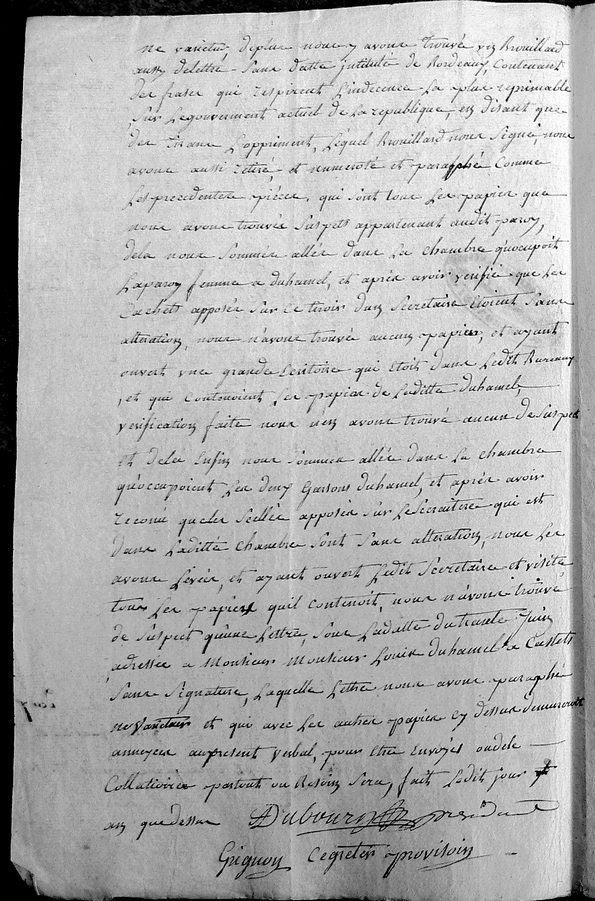 ne varietur, deplus nous y avons trouvée un Brouillard
aussy delettre sans datte jntitulé de Bordeaux, Contenant
des frases qui respirent L'indecence La plus reprimable
sur Legouvernement actuel de La republique, en disant que
des Tirans L'oppriment, Lequel Brouillard nous signé, nous
avons aussi Cettré, et numeroté et paraphée Comme
Les precedentes pièces, qui sont tous Les papiers que
nous avons trouvés suspects appartenant audit paroy,
dela nous sommes allée dans La chambre qu'ocupoit
Laparoy femme a duhamel, et après avoir verifié que Les
Cachets apposés sur Ce tiroir dun Secretaire Étoient sans
alteration, nous n'avons trouvée aucuns papiers, et ayant
ouvert une grande Ecritoire qui étoit dans Ledit Bureaux
, et qui Contenoient Les papiers de Laditte duhamel,
verification faite nous nen avons trouvé aucun de suspect
Et dela Enfin nous sommes allée dans La chambre
qu'occupoient Les deux Garsons duhamel, et après avoir
reconu que Les scellés apposés sur Le Secraitère qui est
dans Laditte chambre sont sans alteration, nous Les
avons Levée, et ayant ouvert Ledit Secretaire et visité
tous Les papiers quil contenoit, nous n'avons trouvé
de suspect qu'une Lettre, sous Ladatte du trante Juin
adressée a Monsieur Monsieur Louis duhamel a Castets
sans signature, Laquelle Lettre nous avons paraphé
ne varietur et qui avec Les autres papiers cy dessus demureront
annexés auprésent verbal, pour être Envoyés oudele
Collationés partout ou Besoin sera, fait Ledit jour
an quedessus Dubourg président
Grignon Cegretère provisoir